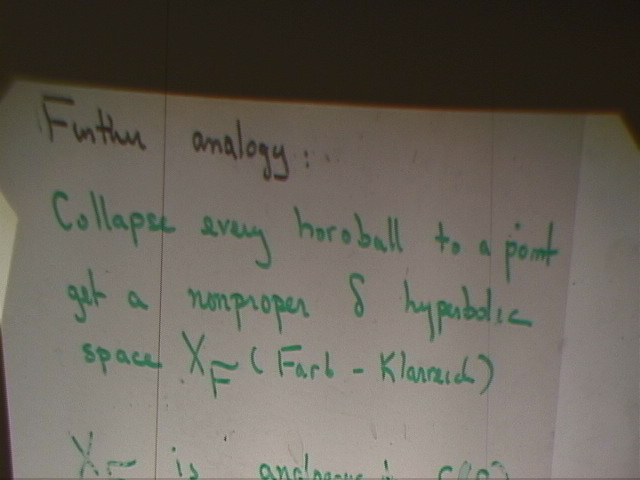 Further analogy:
Collapse every horoball to a point
get a nonproper δ hyperbolic
space X_F (Farb - Klarreich)
X_F is analogous